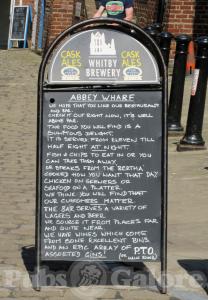 CASK ALES
WHITBY BREWERY
CASK ALES
ABBEY WHARF
WE HOPE THAT YOU LIKE OUR RESTAURANT
AND BAR
CHECK IT OUT RIGHT NOW, IT'S WELL
ABOVE PAR.
THE FOOD YOU WILL FIND IS A
DELIGHT.
IT IS SERVED FROM ELEVEN TILL
HALF EIGHT AT NIGHT.
FISH & CHIPS TO EAT IN OR YOU
CAN TAKE THEM AWAY
OR STEAKS FROM THE 'BERTHA'
COOKED HOW YOU WANT THAT DAY.
CHICKEN ON SKEWERS OR
SEAFOOD ON A PLATTER.
WE THINK YOU WILL FIND THAT
OUR CUSTOMERS MATTER.
THE BAR SERVES A VARIETY OF
LAGERS AND BEER
WE SOURCE IT FROM PLACES FAR
AND QUITE NEAR.
WE HAVE WINES WHICH COME
FROM SOME EXCELLENT BINS
AND AN EPIC ARRAY OF
ASSORTED GINS!
P.T.O.